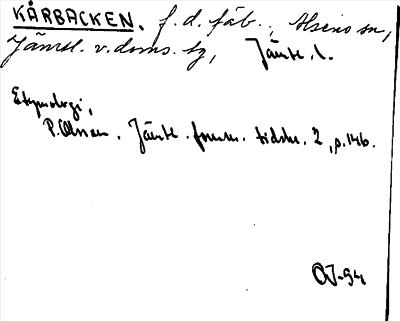 KÅRBACKEN. f. d. fäb., Alsens sn,
Jämtl. v. doms. tg, Jämtl. l.
Etymologi,
P. Olsson. Jämtl. fornm. tidskr. 2, p. 146.
OJ-94